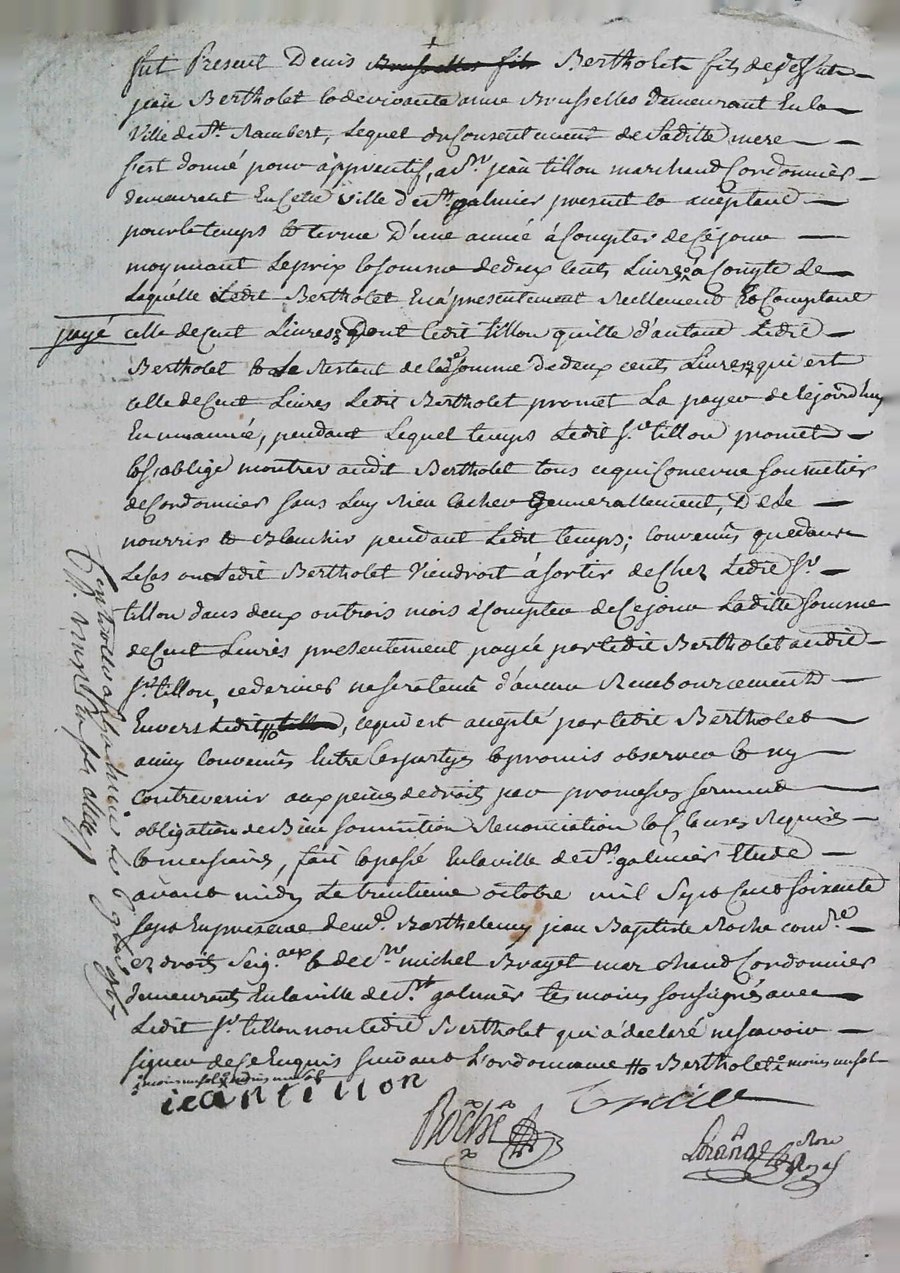 fut Present Denis Brusselles fils Bertholet fils de deffunt
jean Bertholet et de vivante anne Brusselles demeurant En la
Ville de St. Rambert, Lequel du Consentement de Saditte mere
s'est donné pour apprentif, a Sr. jean tillon marchand Cordonnier
demeurant En Cette Ville de St. galmier present et aceptant
pour le temps et terme D'une année à Compter de Cejour
moyenant Le prix et Somme de deux Cents Livres a Compte de
Laquelle Ledit Bertholet En a presentement Reellement Et Comptant
payé celle de Cent Livres Dont ledit tillon quitte d'autant Ledit
Bertholet et Le Restant de la de. Somme de deux cents Livres qui est
celle de Cent Livres Ledit Bertholet promet La payer de Cejourd'huy
En une année, pendant Lequel temps Ledit Sr. tillon promet
et s'oblige montrer audit Bertholet tous ce qui Concerne Son metier
de Cordonnier Sans Luy Rien Cacher Gennerallement, De Le
nourrir et Blanchir pendant Ledit temps; Convenus que dans
Le Cas ou Ledit Bertholet Viendroit à Sortir de Chez Ledit Sr.
tillon dans deux ou trois mois à Compter de Cejour Laditte Somme
de Cent Livres presentement payée par ledit Bertholet audit
Sr. tillon, ce dernier ne Sera tenu d'aucun Remboursement
Envers Ledit tillon, ce qui est accepté par ledit Bertholet
ainsy Convenus Entre les partyes et promis observer et ny
Contrevenir aux peines de droits par promesses Serment
obligation de Bien Soumition Renonciation et Clauses Requises
et necessaires, fait et passé En la ville de St. galmier Etude
avant midy Le trentieme octobre mil Sept Cent Soixante
Sept En presence de me. Barthelemy jean Baptiste Roche
Ez droits Seig.aux et de Sr. michel Brayet marchand Cordonnier
demeurants En la ville de St. galmier temoins Soussignés avec
Ledit Sr. tillon non ledit Bertholet qui a declaré ne Scavoir
signer de ce Enquis Suivant L'ordonnance Bertholet
jean tillon
Roche